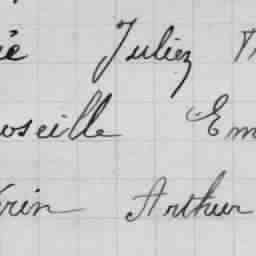 ie Juliez
oseille Em
rin Arthur